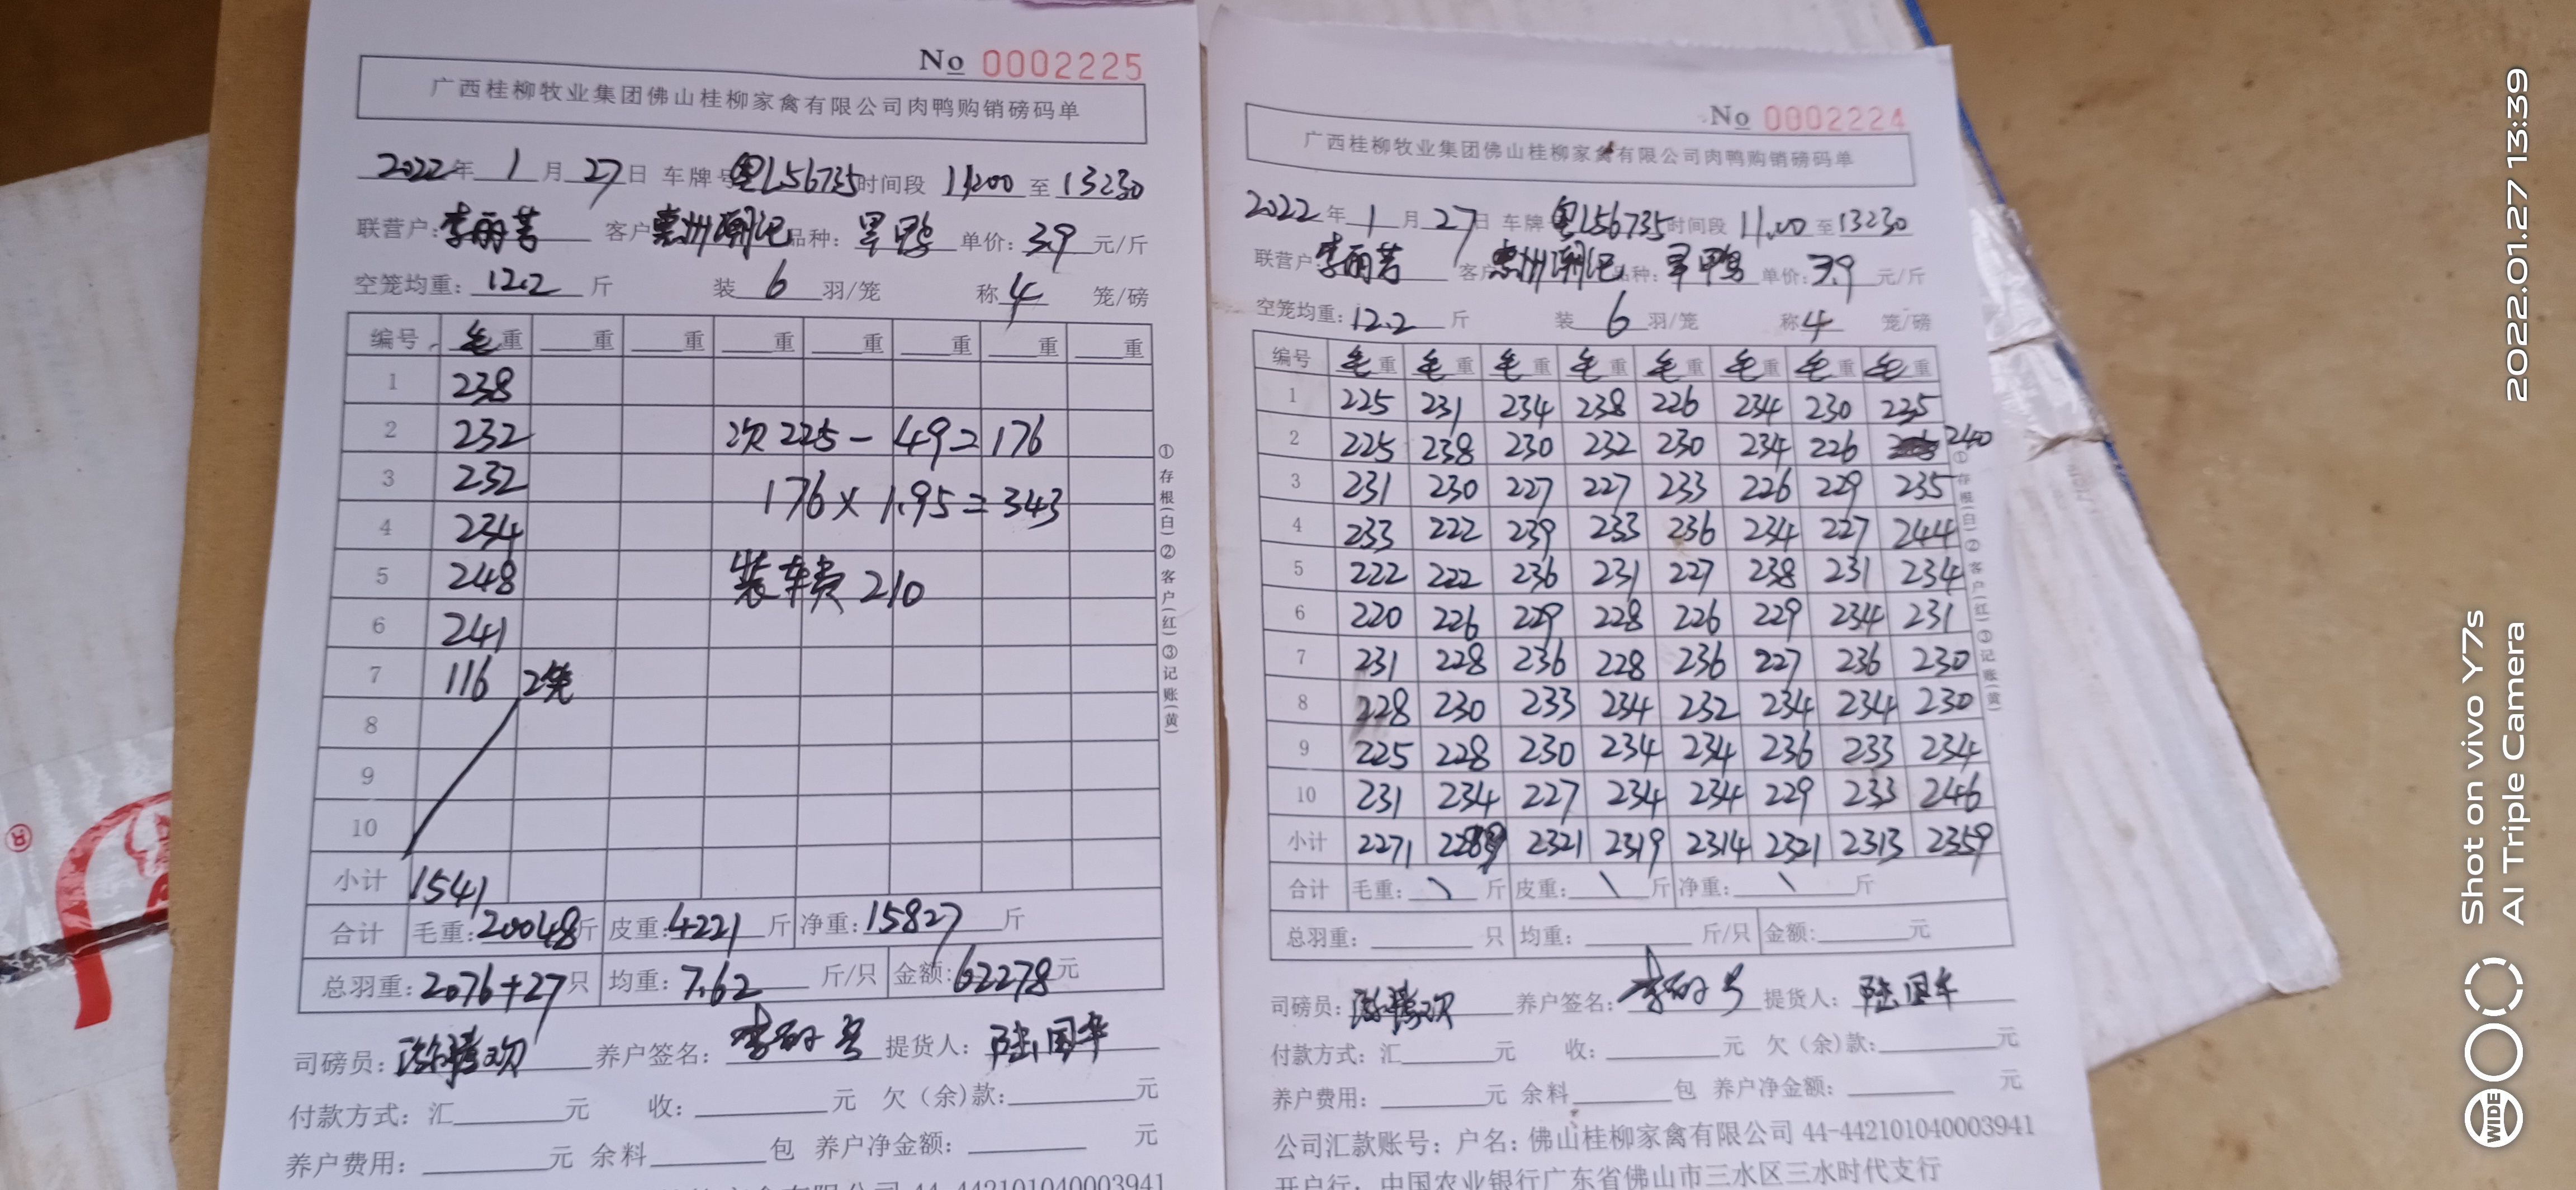 No 0002225
广西桂柳牧业集团佛山桂柳家禽有限公司肉鸭购销磅码单
2022年 1 月 27 日 车牌号 粤L56735 时间段 11200 至 13230
联营户: 李丽芳 客户 惠州潮记 品种: 旱鸭 单价: 3.9 元/斤
空笼均重: 12.2 斤 装 6 羽/笼 称 4 笼/磅
编号 毛重 重 重 重 重 重 重 重
1 238
2 232 次225-49=176
3 232 176×1.95=343
4 234
5 248 装车费210
6 241
7 116 2笼
8
9
10
小计 1541
合计 毛重: 20048斤 皮重: 4221斤 净重: 15827斤
总羽重: 2076+27只 均重: 7.62 斤/只 金额: 62278元
司磅员: 养户签名: 李 提货人: 陆国华
付款方式: 汇 元 收: 元 欠(余)款: 元
养户费用: 元 余料 包 养户净金额: 元
44-442101040003941
①存根(白)②客户(红)③记账(黄)
No 0002224
广西桂柳牧业集团佛山桂柳家禽有限公司肉鸭购销磅码单
2022年 1 月 27日 车牌 粤L56735 时间段 11.00 至 13230
联营户: 李丽芳 客户 惠州潮记 品种: 旱鸭 单价: 3.9 元/斤
空笼均重: 12.2 斤 装 6 羽/笼 称 4 笼/磅
编号 毛重 毛重 毛重 毛重 毛重 毛重 毛重 毛重
1 225 231 234 238 226 234 230 235
2 225 238 230 232 230 234 226 240
3 231 230 227 227 233 226 229 235
4 233 222 239 233 236 234 227 244
5 222 222 236 231 227 238 231 234
6 220 226 229 228 226 229 234 231
7 231 228 236 228 236 227 236 230
8 228 230 233 234 232 234 234 230
9 225 228 230 234 234 236 233 234
10 231 234 227 234 234 229 233 246
小计 2271 2289 2321 2319 2314 2321 2313 2359
合计 毛重: \ 斤 皮重: \ 斤 净重: \ 斤
总羽重: 只 均重: 斤/只 金额: 元
司磅员: 养户签名: 李 提货人: 陆国华
付款方式: 汇 元 收: 元 欠(余)款: 元
养户费用: 元 余料 包 养户净金额: 元
公司汇款账号: 户名: 佛山桂柳家禽有限公司 44-442101040003941
开户行: 中国农业银行广东省佛山市三水区三水时代支行
①存根(白)②客户(红)③记账(黄)
2022.01.27 13:39
Shot on vivo Y7s
AI Triple Camera
WIDE